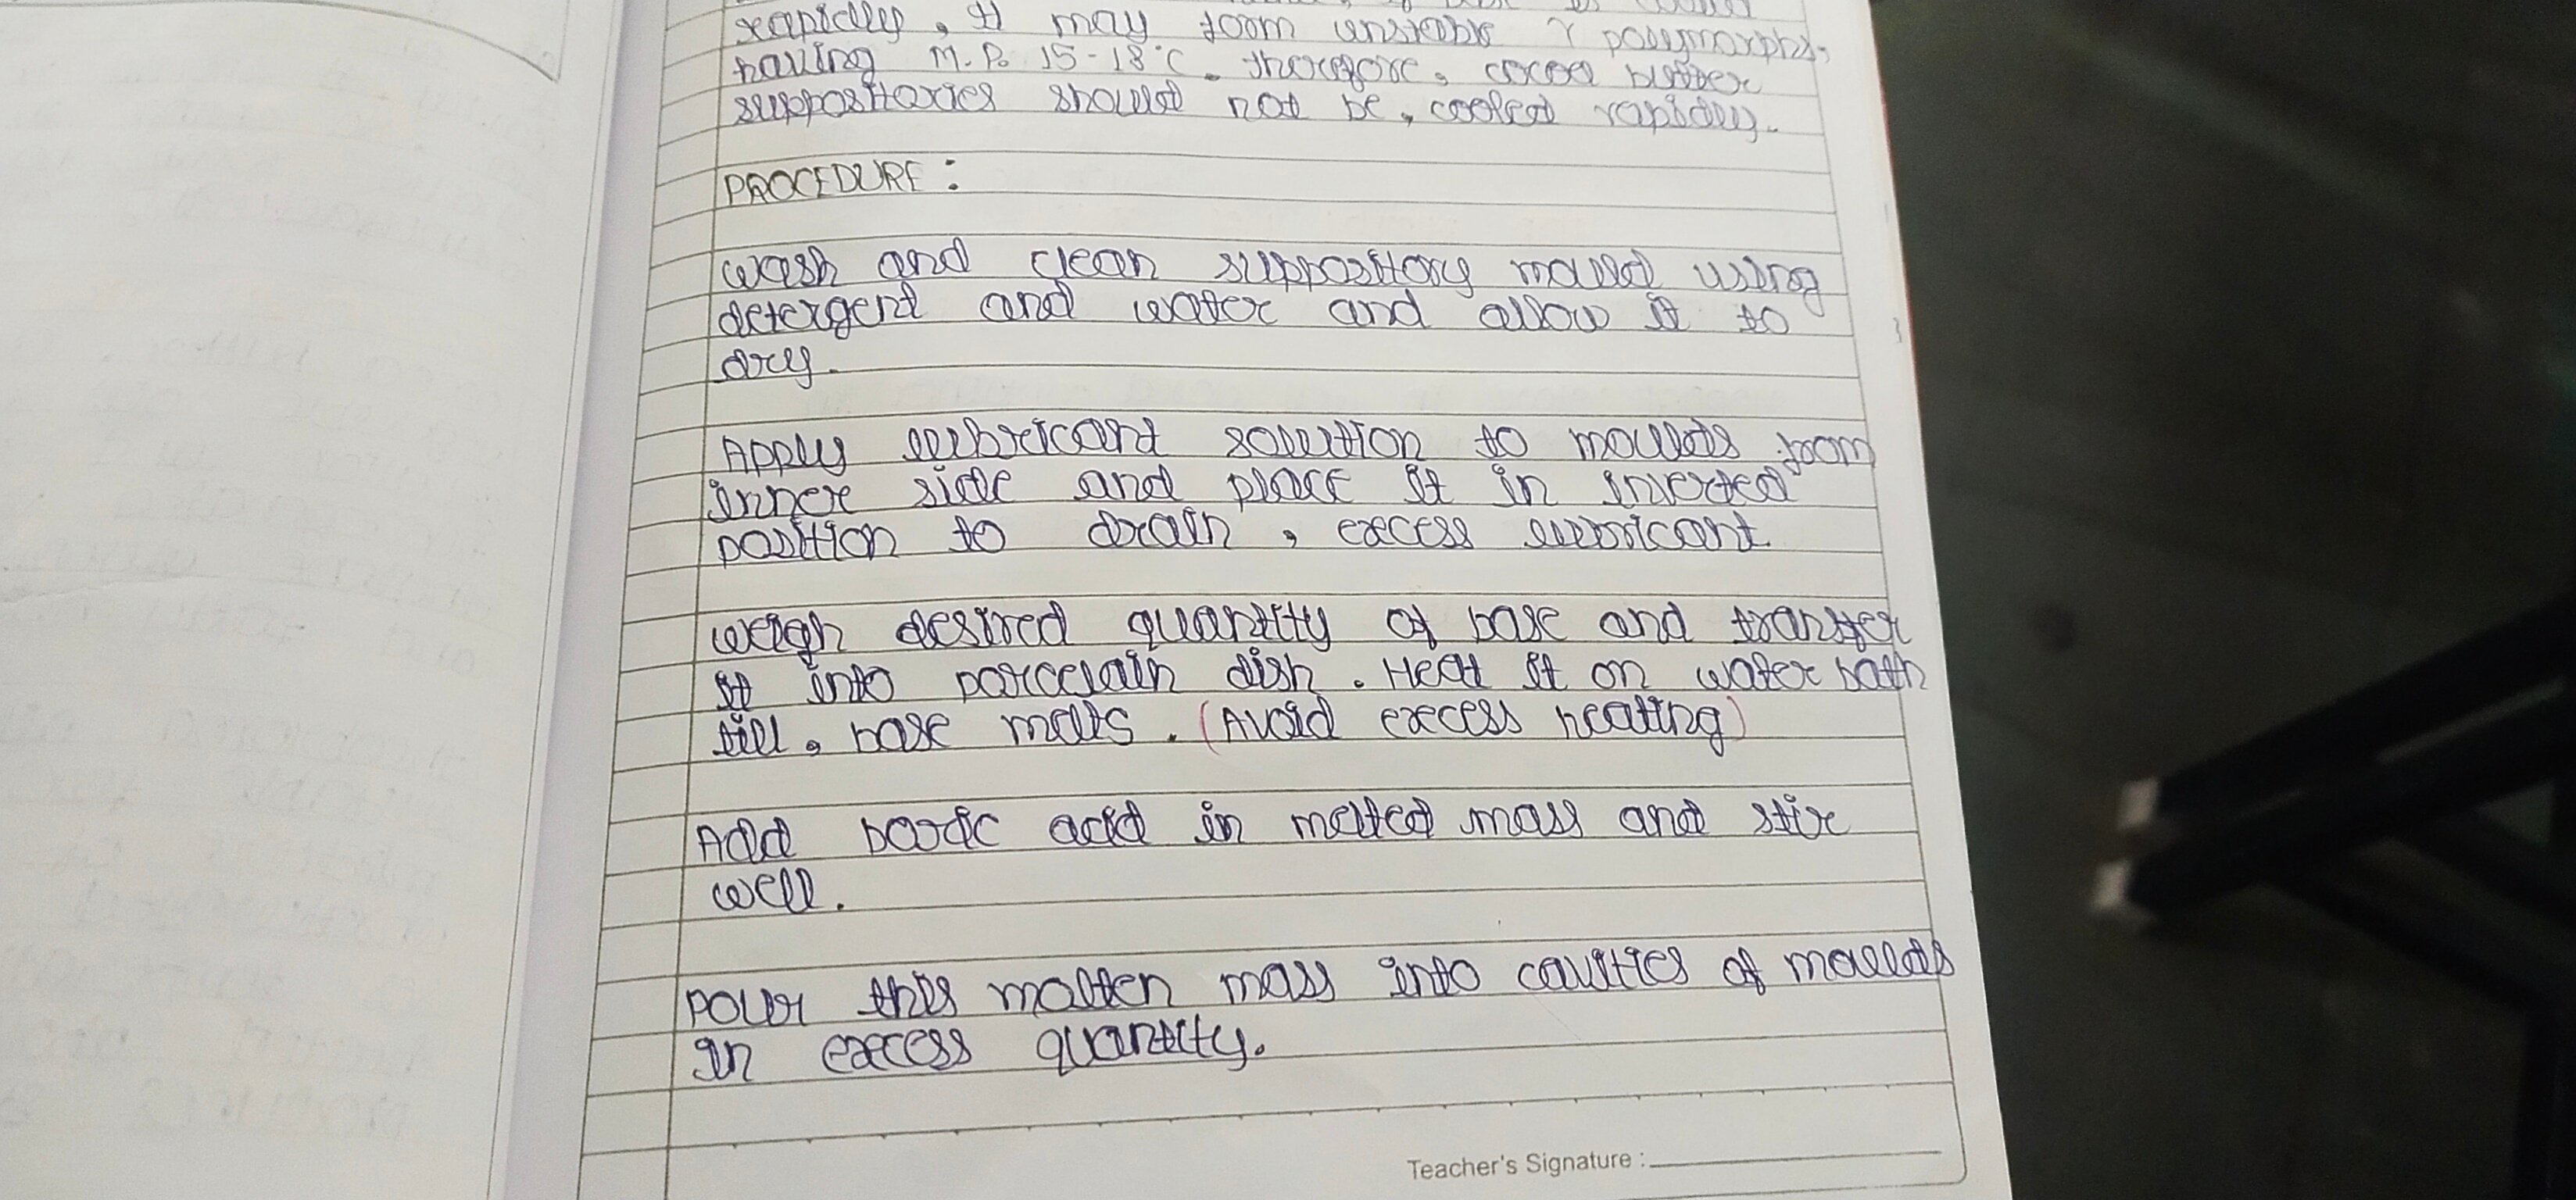 rapidly, It may form unstable γ polymorphs,
having M.P. 15-18°C. therefore, cocoa butter
suppositories should not be, cooled rapidly.
PROCEDURE :
wash and clean suppository mould using
detergent and water and allow it to
dry.
Apply lubricant solution to moulds from
inner side and place it in inverted
position to drain, excess lubricant
weigh desired quantity of base and transfer
it into porcelain dish. Heat it on water bath
till, base melts. (Avoid excess heating)
Add boric acid in melted mass and stir
well.
Pour this molten mass into cavities of moulds
In excess quantity.
Teacher's Signature :